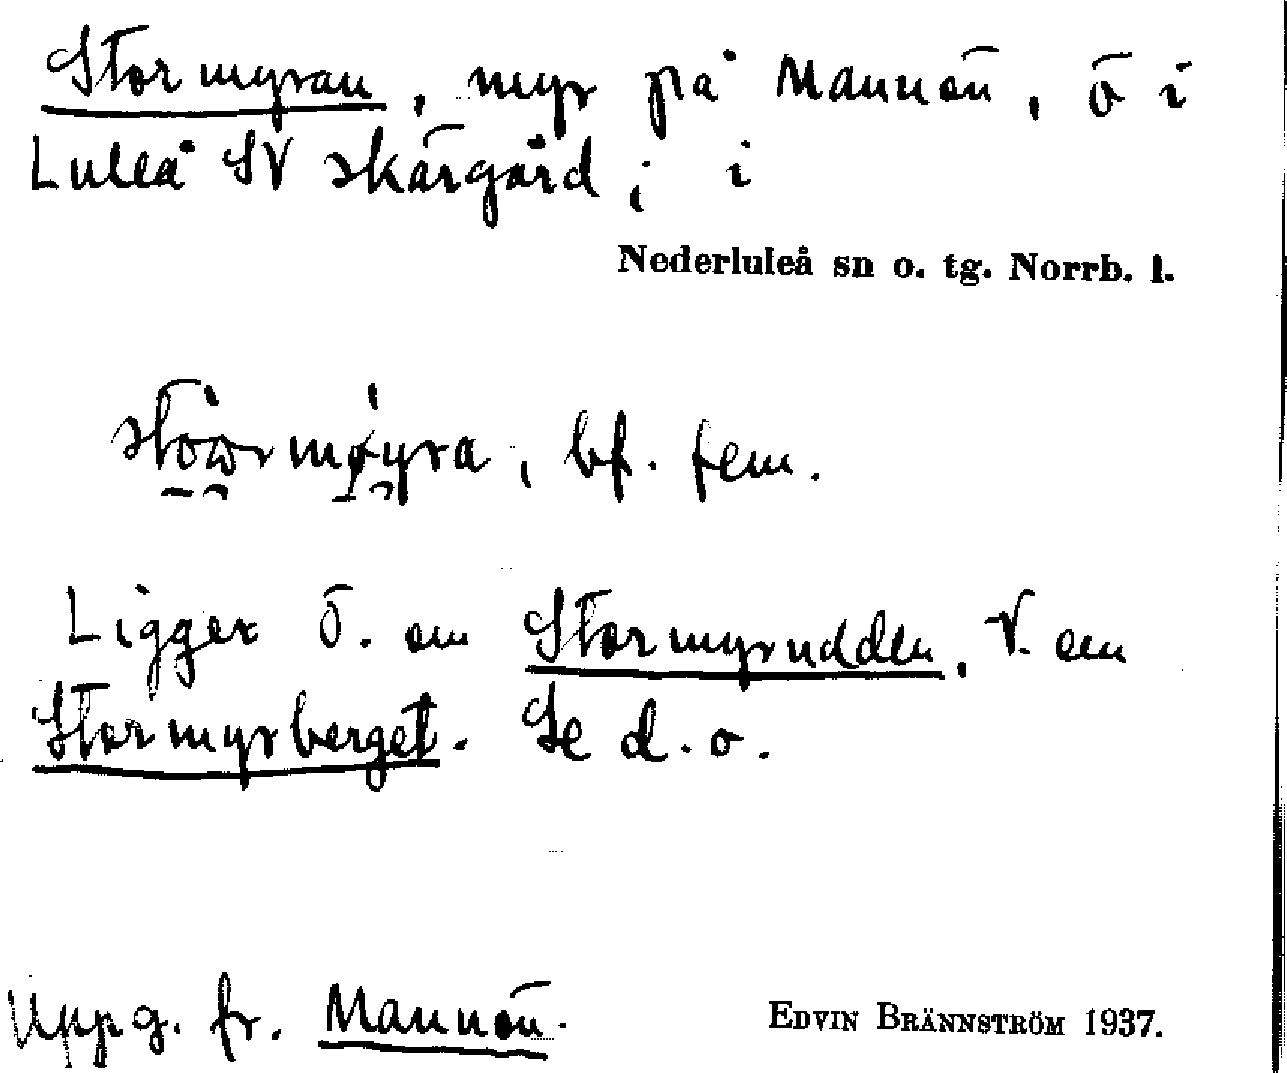 Stormyran, myr på Mannön, ö i
Luleå SV skärgård; i
Nederluleå sn o. tg. Norrb. l.
bf. fem.
Ligger Ö. om Stormyrudden, V. om
Stormyrberget. Se d. o.
Uppg. fr. Mannön.
EDVIN BRÄNNSTRÖM 1937.